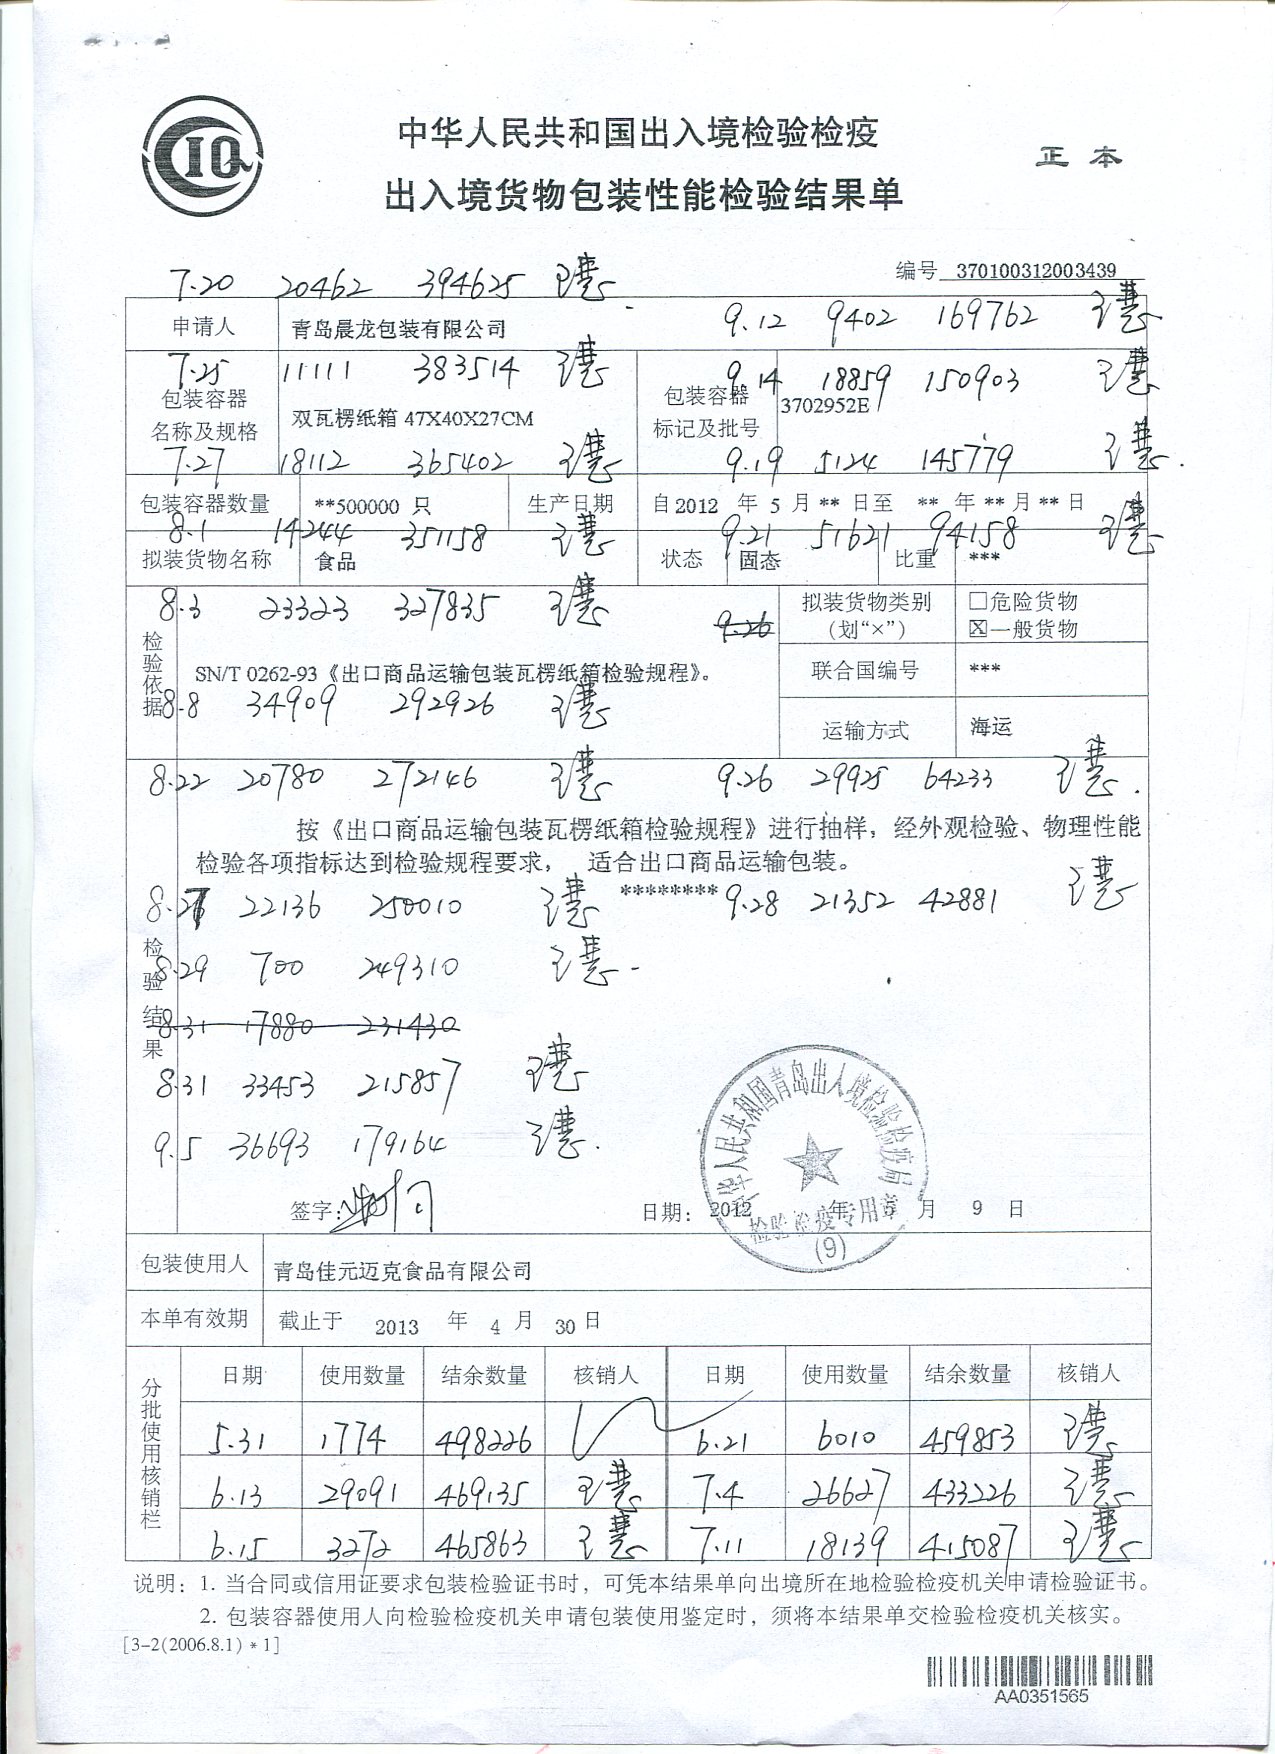 CIQ
中华人民共和国出入境检验检疫
正本
出入境货物包装性能检验结果单
编号 370100312003439
7.20 20462 394625
申请人 青岛晨龙包装有限公司 9.12 9402 169762
7.25 11111 383514 9.14 18859 150903
包装容器名称及规格 双瓦楞纸箱 47X40X27CM 包装容器标记及批号 3702952E
7.27 18112 365402 9.19 5124 145779
包装容器数量 **500000 只 生产日期 自2012 年 5 月 ** 日至 ** 年 ** 月 ** 日
8.1 14244 351158 9.21 51621 94158
拟装货物名称 食品 状态 固态 比重 ***
8.3 23323 327835 9.26
拟装货物类别(划“×”) □危险货物
☒一般货物
检验依据 SN/T 0262-93《出口商品运输包装瓦楞纸箱检验规程》。
联合国编号 ***
8.8 34909 292926
运输方式 海运
8.22 20780 272146 9.26 29925 64233
检验结果
按《出口商品运输包装瓦楞纸箱检验规程》进行抽样，经外观检验、物理性能
检验各项指标达到检验规程要求， 适合出口商品运输包装。
********
8.27 22136 250010 9.28 21352 42881
8.29 700 249310
8.31 17880 231430
8.31 33453 215857
9.5 36693 179164
签字： 日期： 2012 年 5 月 9 日
中华人民共和国青岛出入境检验检疫局
检验检疫专用章
(9)
包装使用人 青岛佳元迈克食品有限公司
本单有效期 截止于 2013 年 4 月 30 日
分批使用核销栏
日期 使用数量 结余数量 核销人 日期 使用数量 结余数量 核销人
5.31 1774 498226 6.21 6010 459853
6.13 29091 469135 7.4 26627 433226
6.15 3272 465863 7.11 18139 415087
说明：1. 当合同或信用证要求包装检验证书时，可凭本结果单向出境所在地检验检疫机关申请检验证书。
2. 包装容器使用人向检验检疫机关申请包装使用鉴定时，须将本结果单交检验检疫机关核实。
[3-2(2006.8.1)*1]
AA0351565